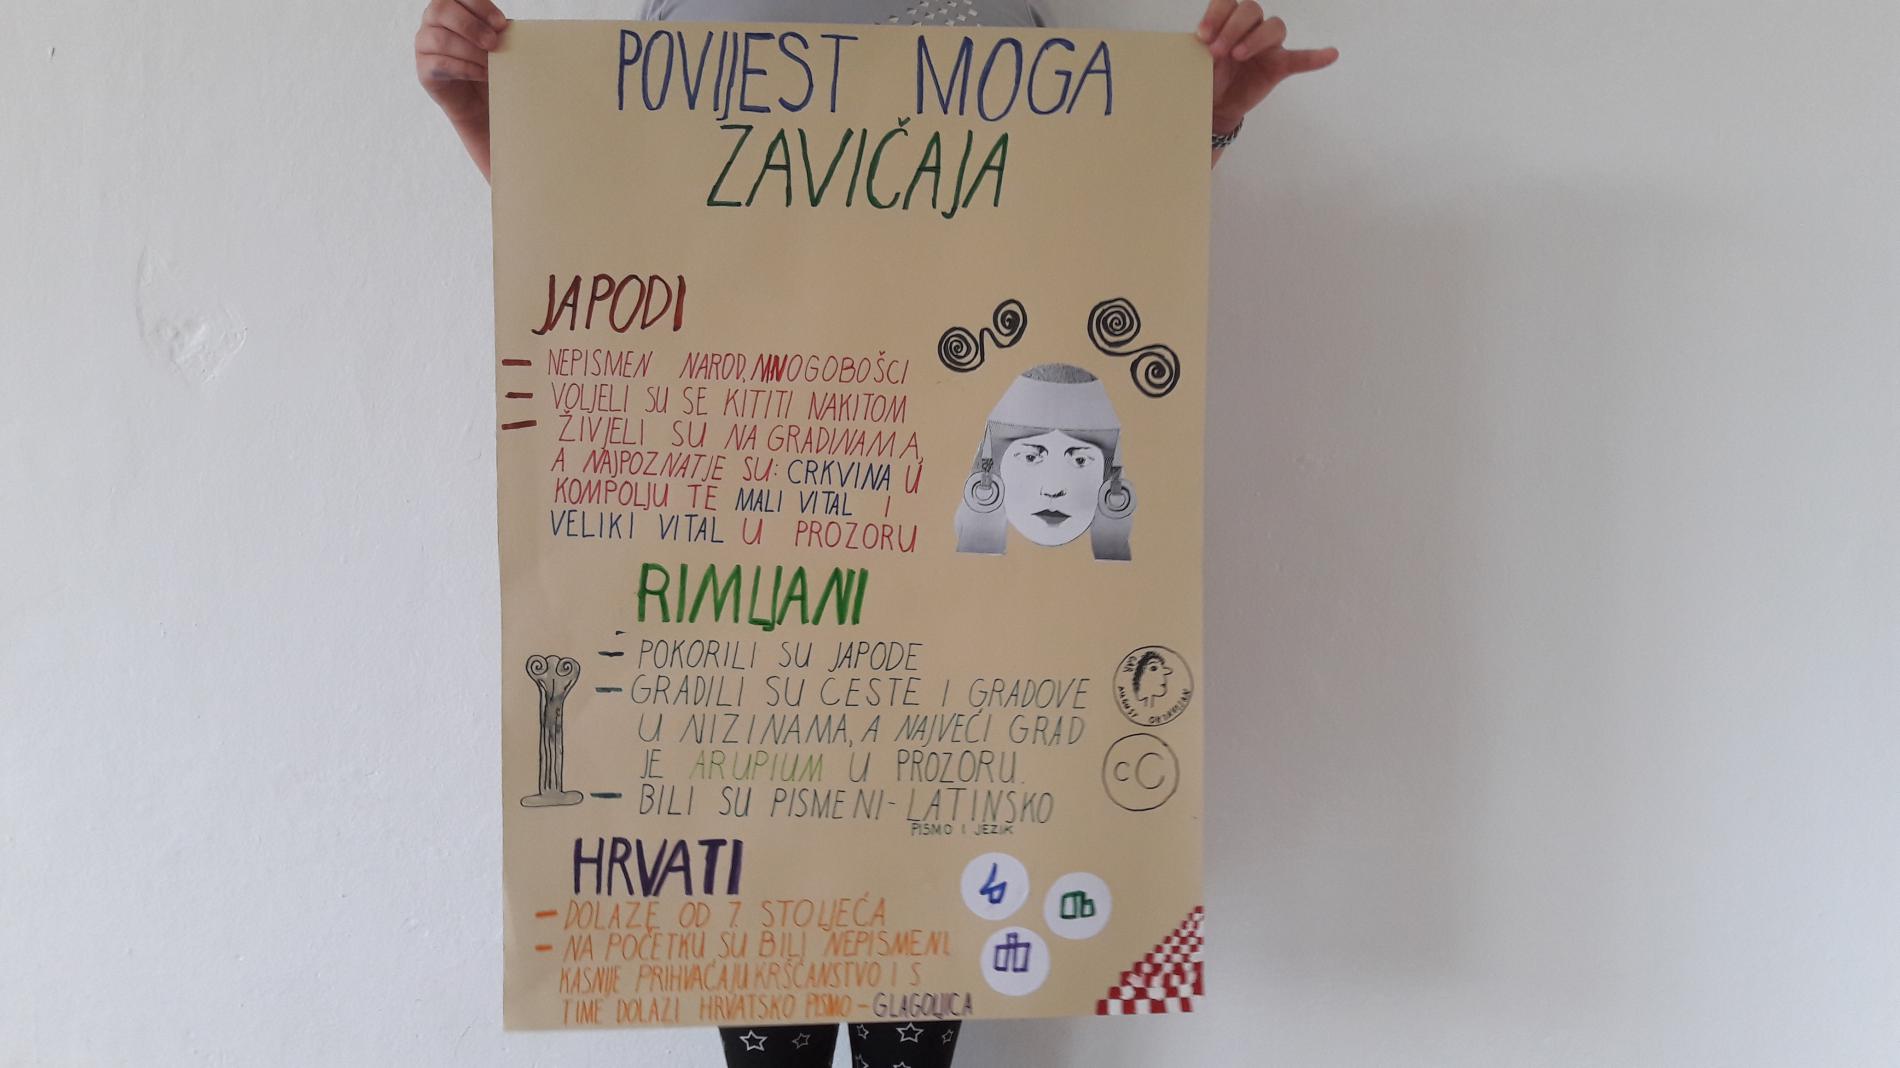 POVIJEST MOGA
ZAVIČAJA
JAPODI
– NEPISMEN NAROD, MNOGOBOŠCI
– VOLJELI SU SE KITITI NAKITOM
– ŽIVJELI SU NA GRADINAMA,
A NAJPOZNATJE SU: CRKVINA U
KOMPOLJU TE MALI VITAL I
VELIKI VITAL U PROZORU
RIMLJANI
– POKORILI SU JAPODE
– GRADILI SU CESTE I GRADOVE
U NIZINAMA, A NAJVEĆI GRAD
JE ARUPIUM U PROZORU.
– BILI SU PISMENI - LATINSKO
PISMO I JEZIK
CAR
AUGUST OKTAVIJAN
CC
HRVATI
– DOLAZE OD 7. STOLJEĆA
– NA POČETKU SU BILI NEPISMENI,
KASNIJE PRIHVAĆAJU KRŠĆANSTVO I S
TIME DOLAZI HRVATSKO PISMO – GLAGOLJICA